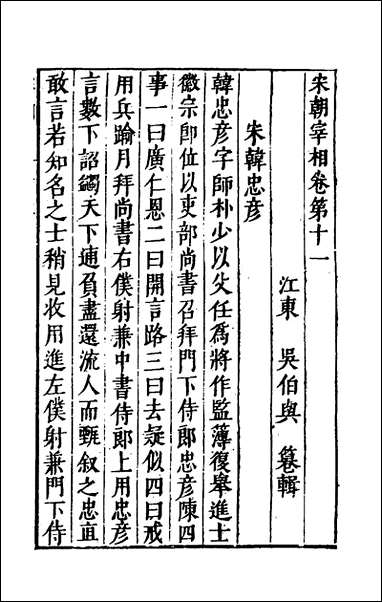 宋朝宰相卷第十一
江東　吳伯與　篹輯
宋韓忠彥
韓忠彥字師朴少以父任爲將作監簿復舉進士
徽宗卽位以吏部尚書召拜門下侍郎忠彥陳四
事一曰廣仁恩二曰開言路三曰去疑似四曰戒
用兵踰月拜尚書右僕射兼中書侍郎上用忠彥
言數下詔蠲天下逋負盡還流人而甄叙之忠直
敢言若知名之士稍見收用進左僕射兼門下侍